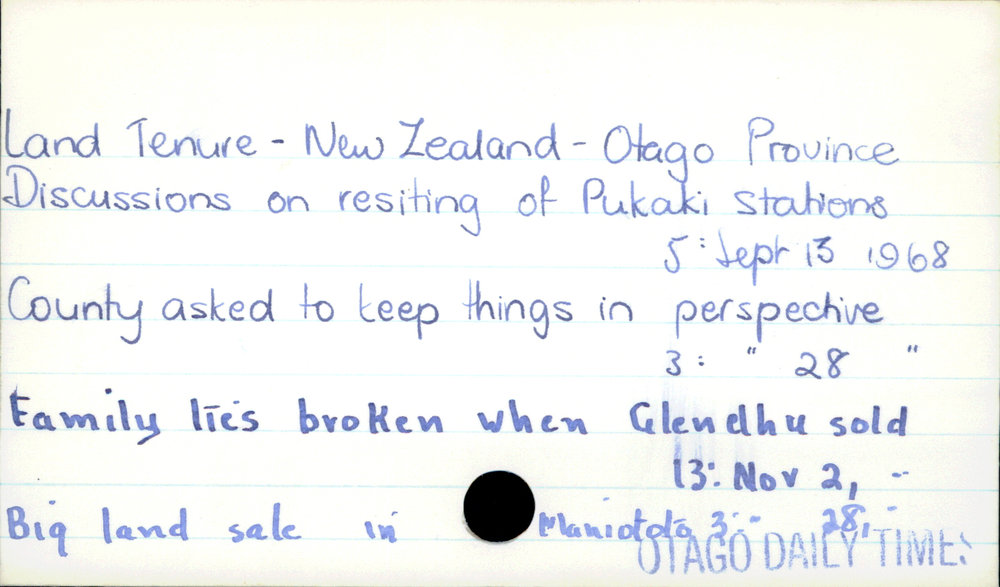 Land Tenure - New Zealand - Otago Province
Discussions on resiting of Pukaki stations
5: Sept 13 1968
County asked to keep things in perspective
3: " 28 "
Family ties broken when Glendhu sold
13: Nov 2, --
Big land sale in Maniototo 3: -- 28, -
OTAGO DAILY TIMES